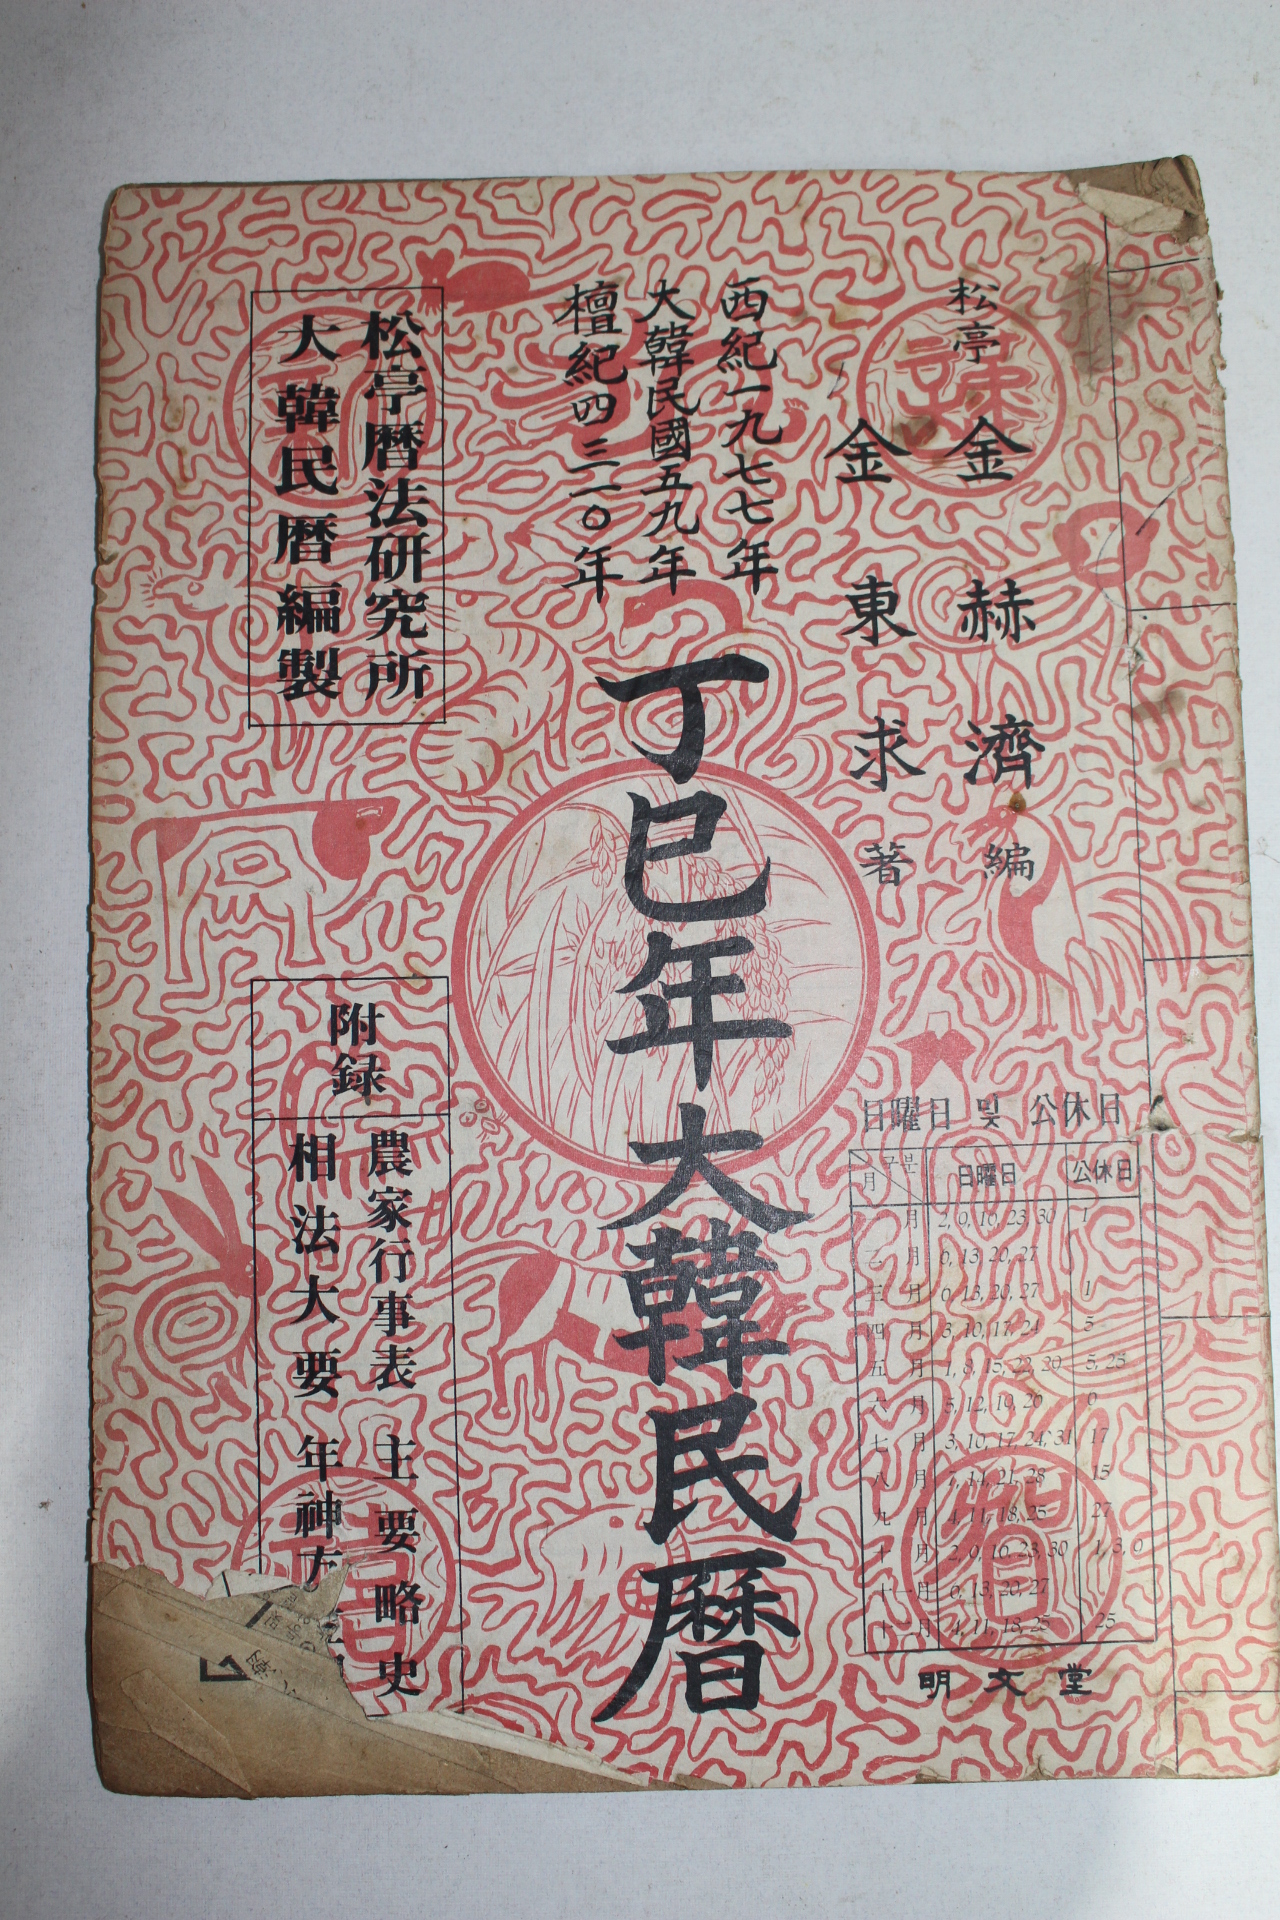 松亭 金赫濟 編
金東求 著
西紀一九七七年
大韓民國五九年
檀紀四三一〇年
丁巳年大韓民曆
松亭曆法研究所
大韓民曆編製
附録
農家行事表 主要略史
相法大要 年神方
日曜日 및 公休日
月 구분 日曜日 公休日
一月 2, 9, 16, 23, 30 1
二月 6, 13, 20, 27
三月 6, 13, 20, 27 1
四月 3, 10, 17, 24 5
五月 1, 8, 15, 22, 29 5, 25
六月 5, 12, 19, 26 6
七月 3, 10, 17, 24, 31 17
八月 7, 14, 21, 28 15
九月 4, 11, 18, 25 27
十月 2, 9, 16, 23, 30 1, 3, 9
十一月 6, 13, 20, 27
十二月 4, 11, 18, 25 25
明文堂